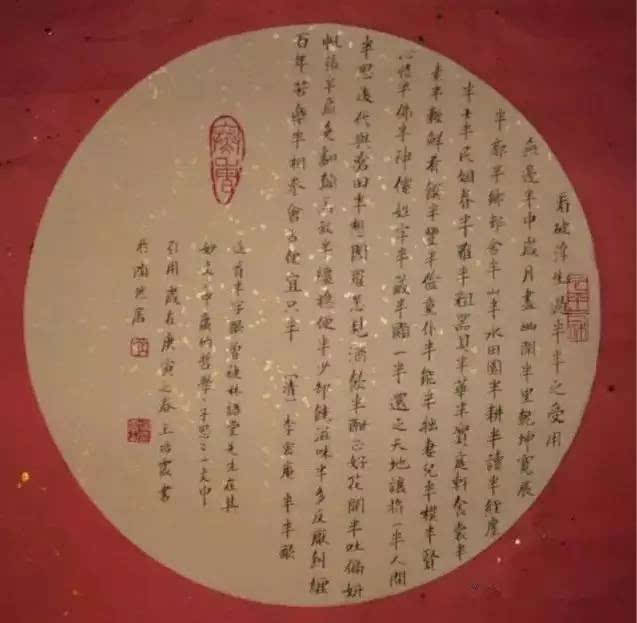 看破浮生過半半之受用
無邊半中歲月盡幽閒半里乾坤寬展
半郭半鄉邨舍半山半水田園半耕半讀半經廛
半士半民姻眷半雅半粗器具半華半實庭軒衾裳半
素半輕鮮肴饌半豐半儉童仆半能半拙妻兒半樸半賢
心情半佛半神僊姓字半藏半顯一半還之天地讓將一半人間
半思後代與滄田半想閻羅怎見酒飲半酣正好花開半吐偏妍
帆張半扇免翻顛馬放半韁穩便半少卻饒滋味半多反厭糾纏
百年苦樂半相參會占便宜只半 〔清〕李密庵 半半歌
近有半字歌曾被林語堂先生在其
妙文中庸的哲學子思之一文中
引用歲在庚寅之春王書
於然居